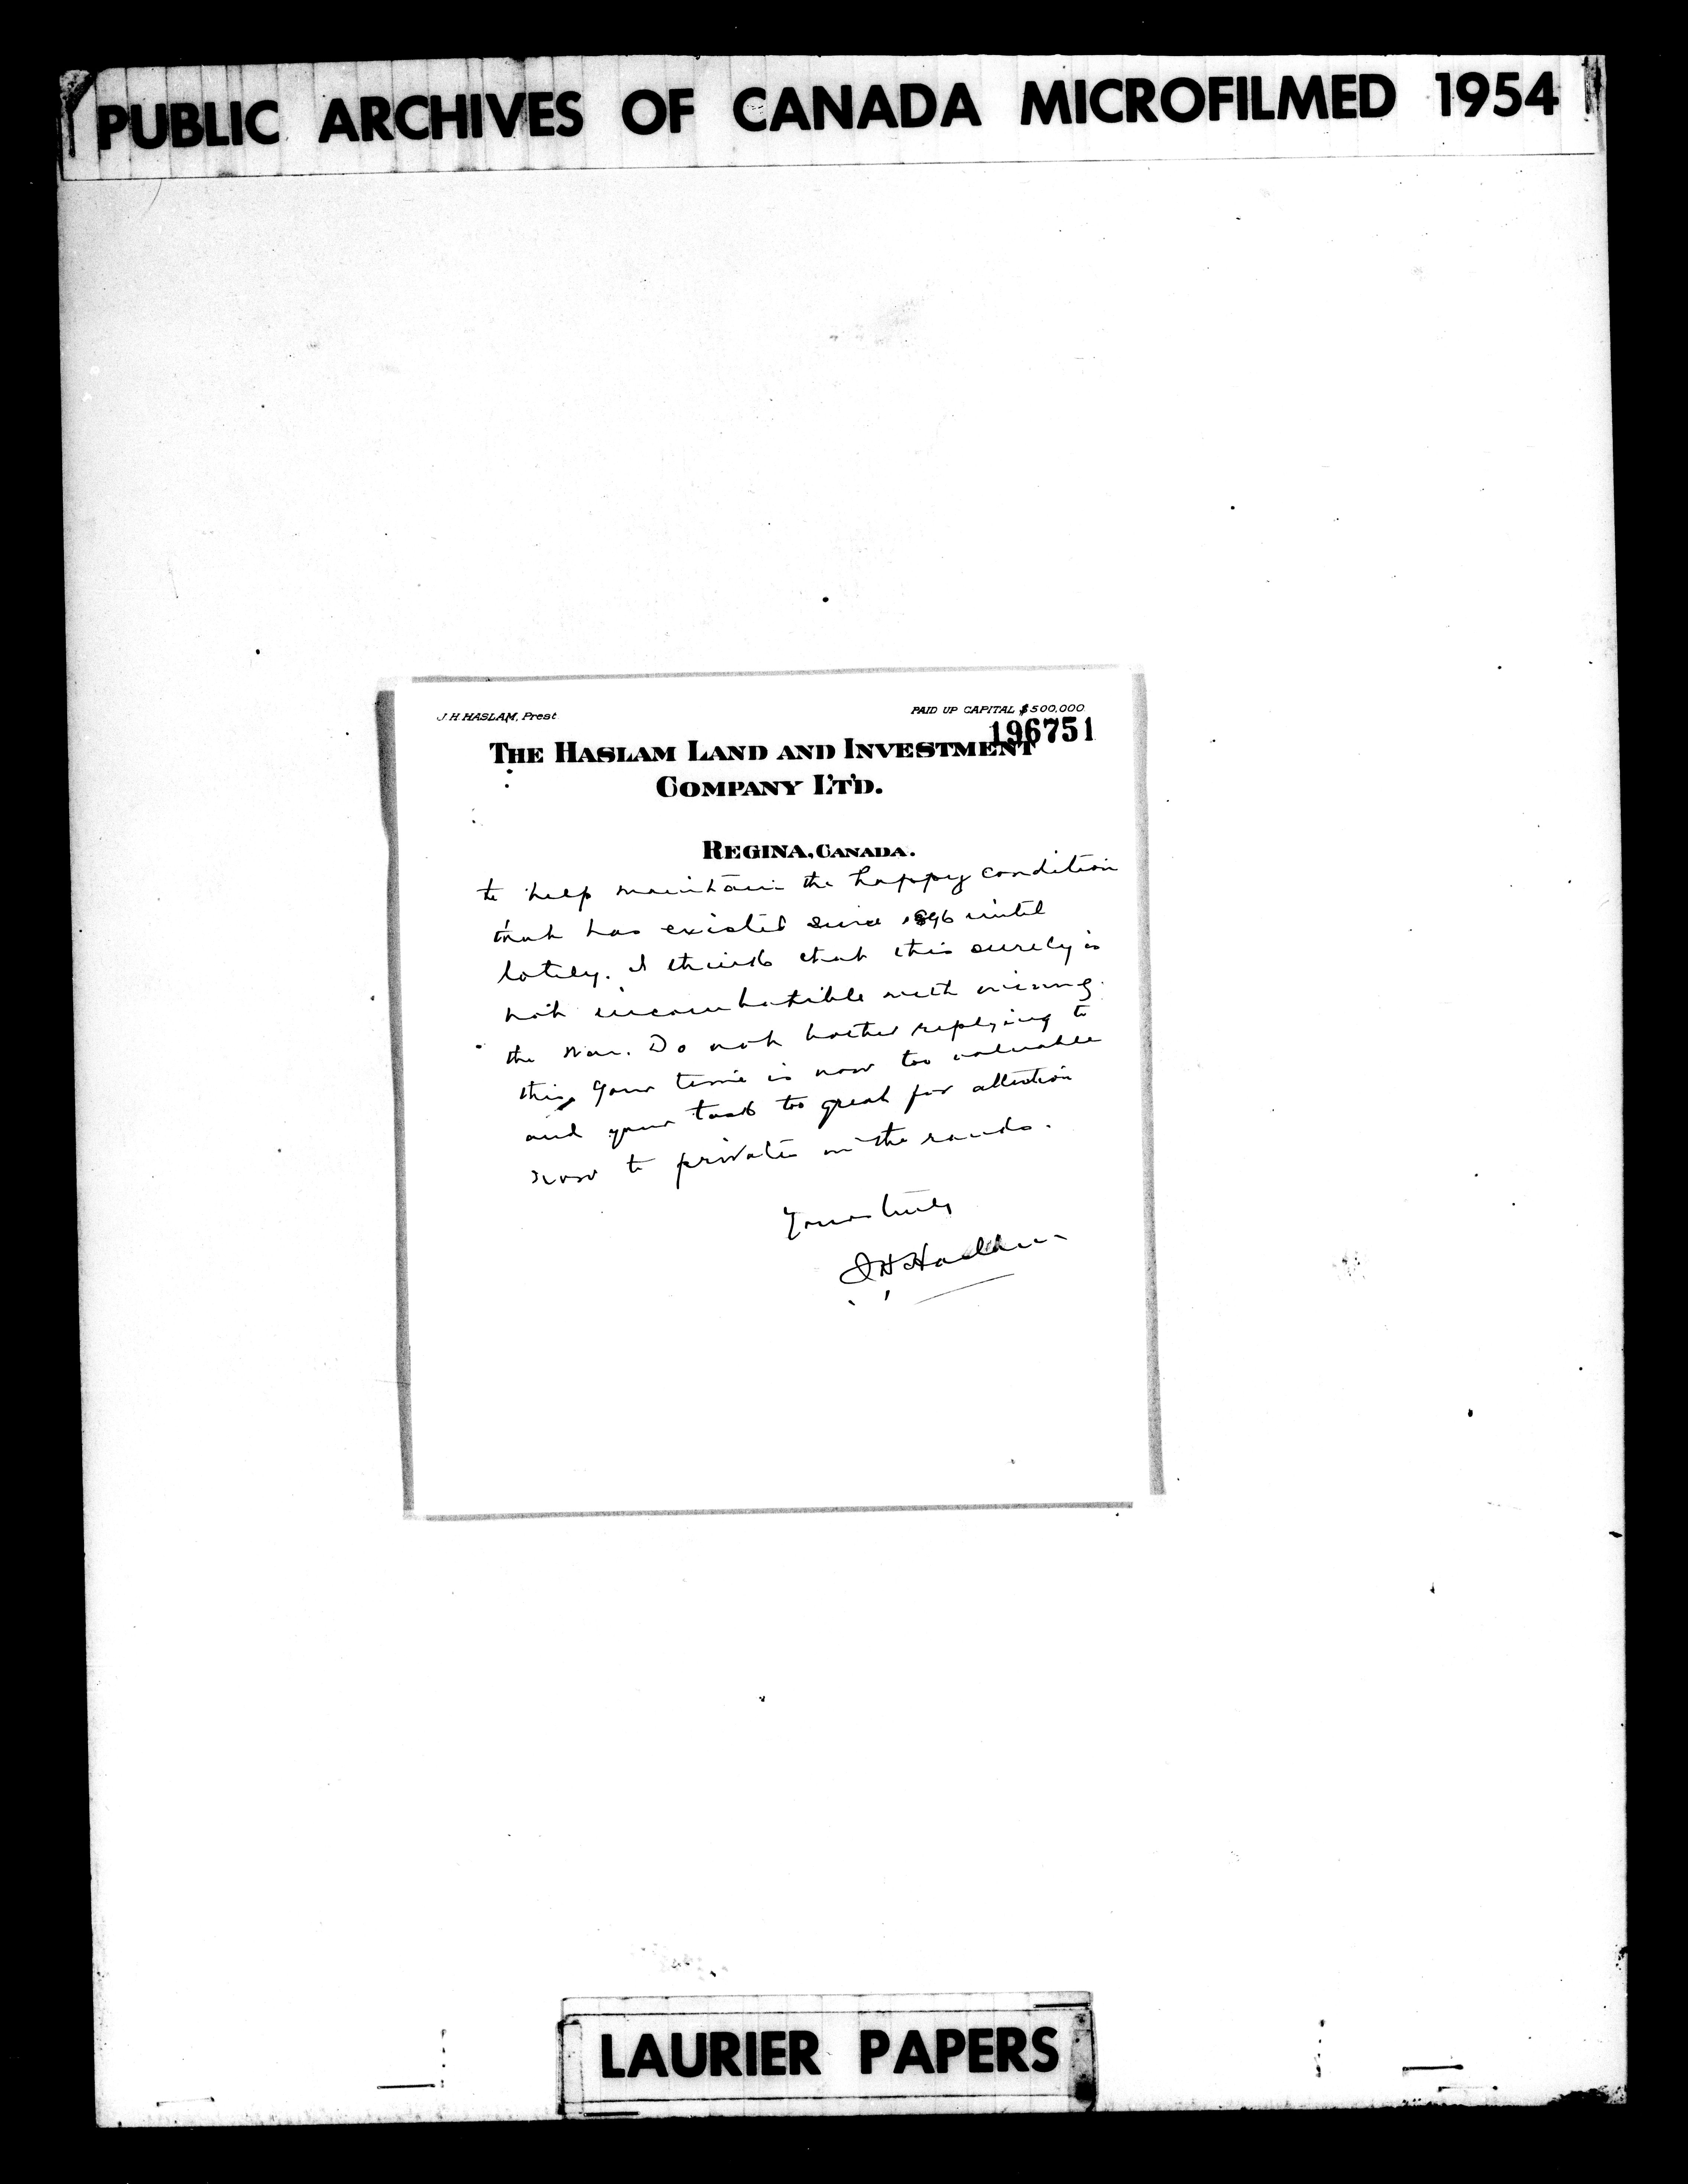 PUBLIC ARCHIVES OF CANADA MICROFILMED 1954
J. H. HASLAM, Prest.
PAID UP CAPITAL $500,000
196751
THE HASLAM LAND AND INVESTMENT
COMPANY L'T'D.
REGINA, CANADA.
to help maintain the happy condition
that has existed since 1896 until
lately. I think that this surely is
not incompatible with winning
the War. Do not bother replying to
this, your time is now too valuable
and your task too great for attention
now to privates in the ranks.
Yours truly
J H Haslam
LAURIER PAPERS